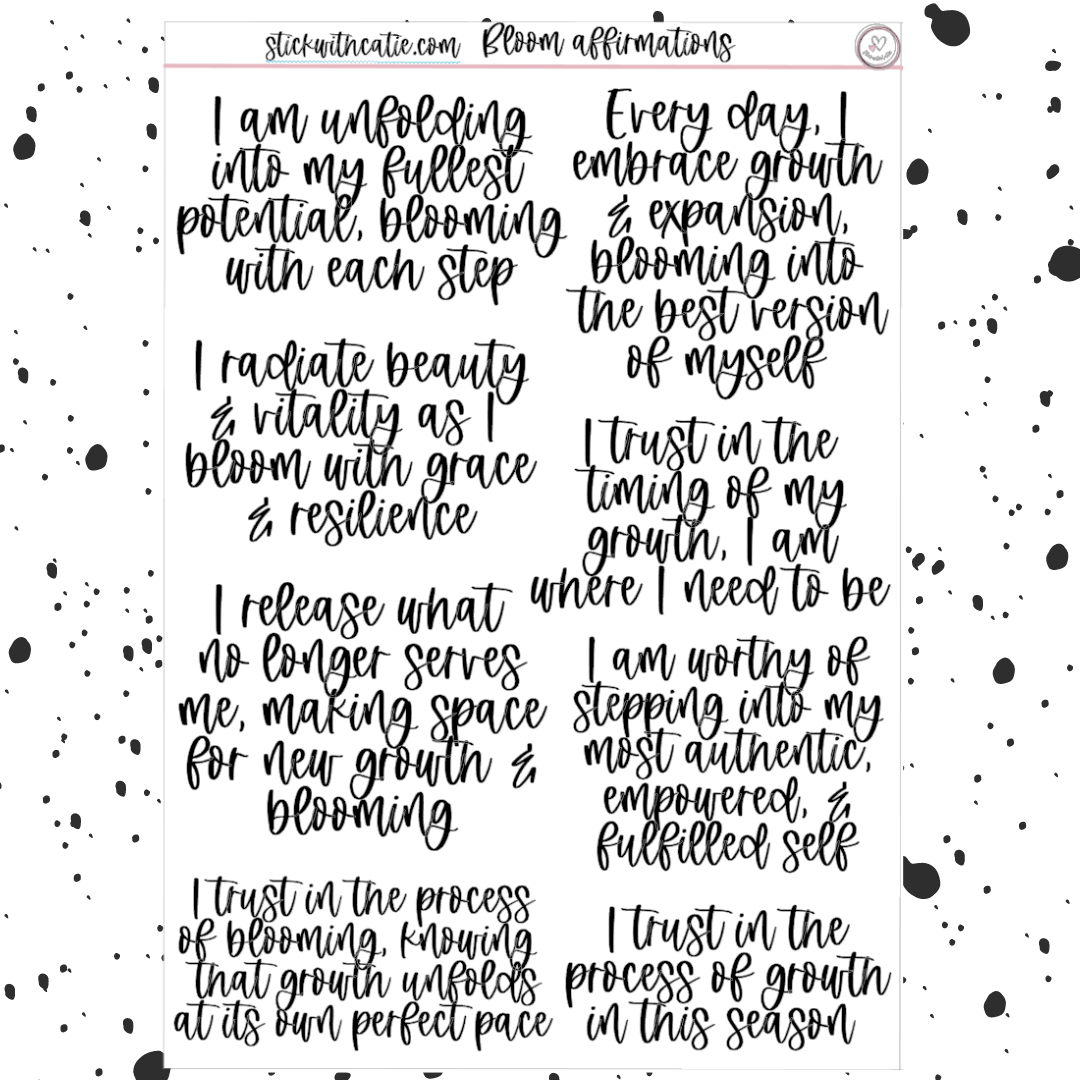 stickwithcatie.com Bloom affirmations
I am unfolding
into my fullest
potential, blooming
with each step
I radiate beauty
& vitality as I
bloom with grace
& resilience
I release what
no longer serves
me, making space
for new growth &
blooming
I trust in the process
of blooming, knowing
that growth unfolds
at its own perfect pace
Every day, I
embrace growth
& expansion,
blooming into
the best version
of myself
I trust in the
timing of my
growth, I am
where I need to be
I am worthy of
stepping into my
most authentic,
empowered, &
fulfilled self
I trust in the
process of growth
in this season